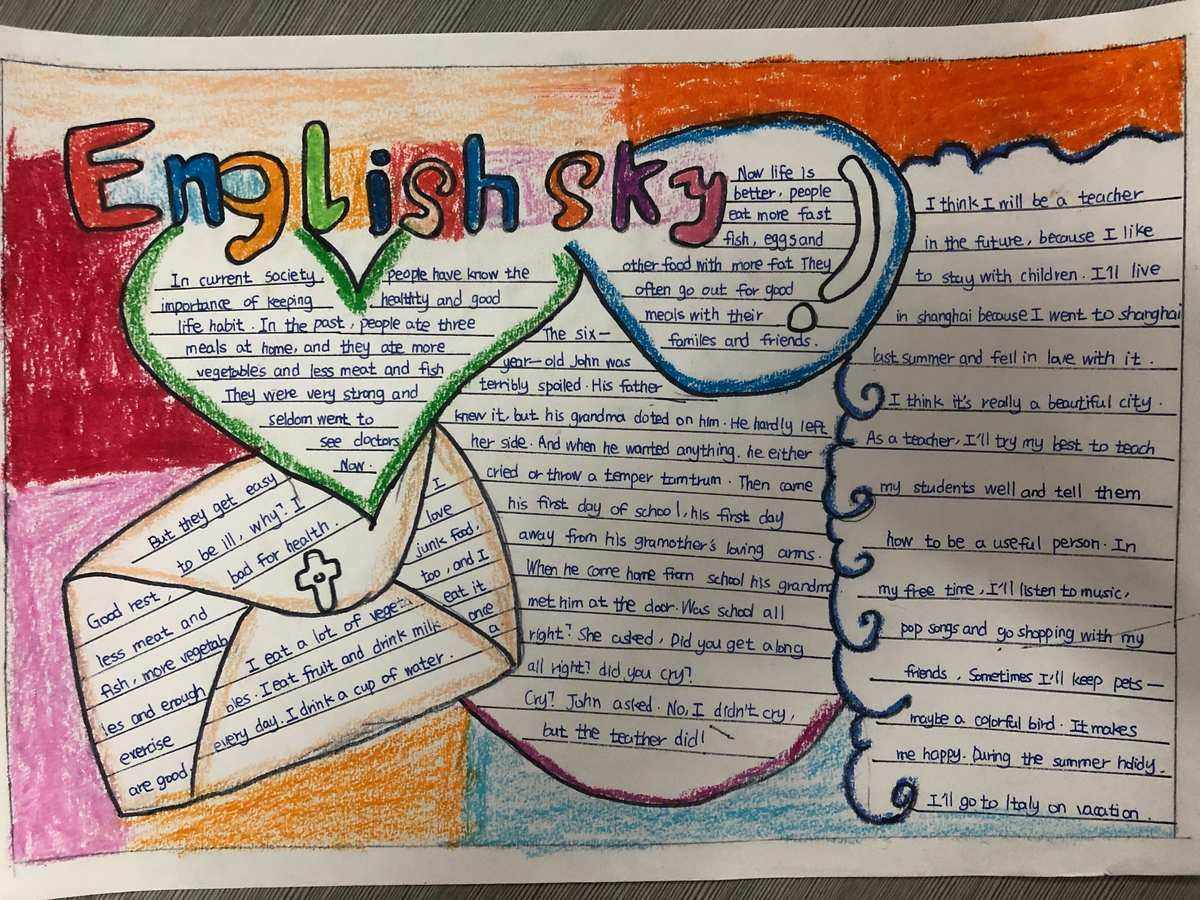 English sky
In current society. people have know the
importance of keeping healthty and good
life habit. In the past, people ate three
meals at home, and they ate more
vegetables and less meat and fish
They were very strong and
seldom went to
see doctors
Now.
Now life is
better, people
eat more fast
fish, eggs and
other food with more fat They
often go out for good
meals with their
familes and friends.
But they get easy
to be Ill, why? I
bad for health.
I
love
junk food,
too, and I
eat it
once
a
Good rest,
less meat and
fish, more vegetab
les and enough
exercise
are good
I eat a lot of vegeta
bles. I eat fruit and drink milk
every day. I drink a cup of water.
The six-
year-old John was
terribly spoiled. His father
knew it. but his grandma doted on him. He hardly left
her side. And when he wanted anything. he either
cried or throw a temper tamtrum. Then came
his first day of school, his first day
away from his gramother's loving arms.
When he come home from school his grandma
met him at the door. Was school all
right? She asked, Did you get along
all right? did you cry?
Cry? John asked. No, I didn't cry,
but the teather did!
I think I will be a teacher
in the future, because I like
to stay with children. I'll live
in shanghai because I went to shanghai
last summer and fell in love with it.
I think it's really a beautiful city.
As a teacher, I'll try my best to teach
my students well and tell them
how to be a useful person. In
my free time, I'll listen to music,
pop songs and go shopping with my
friends, Sometimes I'll keep pets-
maybe a colorful bird. It makes
me happy. During the summer hdidy.
I'll go to Italy on vacation.